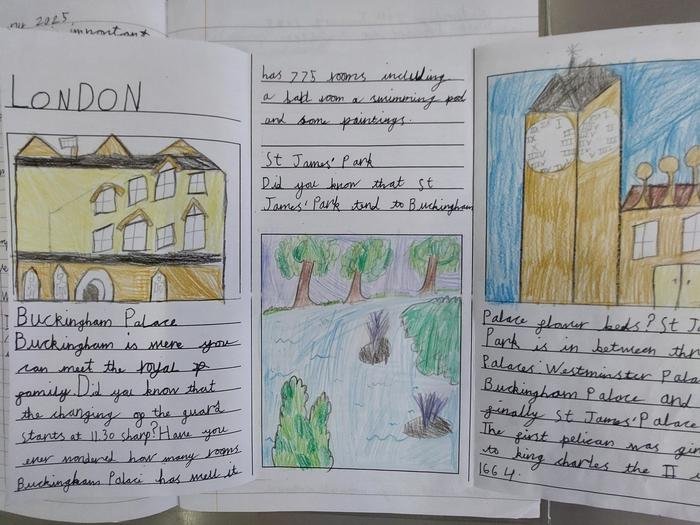 nr 2025,
important
LONDON
Buckingham Palace
Buckingham is were you
can meet the royal
family. Did you know that
the changing of the guard
starts at 11.30 sharp? Have you
ever wondered how many rooms
Buckingham Palace has well it
has 775 rooms including
a ball room a swimming pool
and some paintings.
St James' Park
Did you know that St
James' Park tend to Buckingham
Palace flower beds? St J
Park is in between thr
Palaces: Westminster Pala
Buckingham Palace and
finally St James' Palace
The first pelican was giv
to king charles the II
1664.